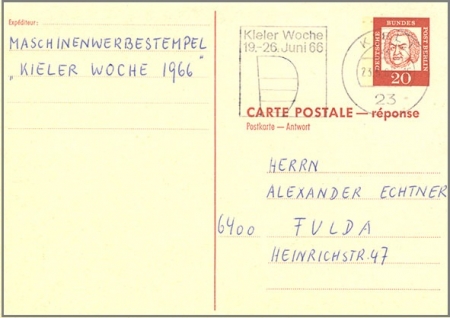 Expéditeur:
MASCHINENWERBESTEMPEL
„KIELER WOCHE 1966“
Kieler Woche
19.-26. Juni 66
DEUTSCHE BUNDESPOST BERLIN
20
23
CARTE POSTALE — réponse
Postkarte — Antwort
HERRN
ALEXANDER ECHTNER
6400 FULDA
HEINRICHSTR. 47